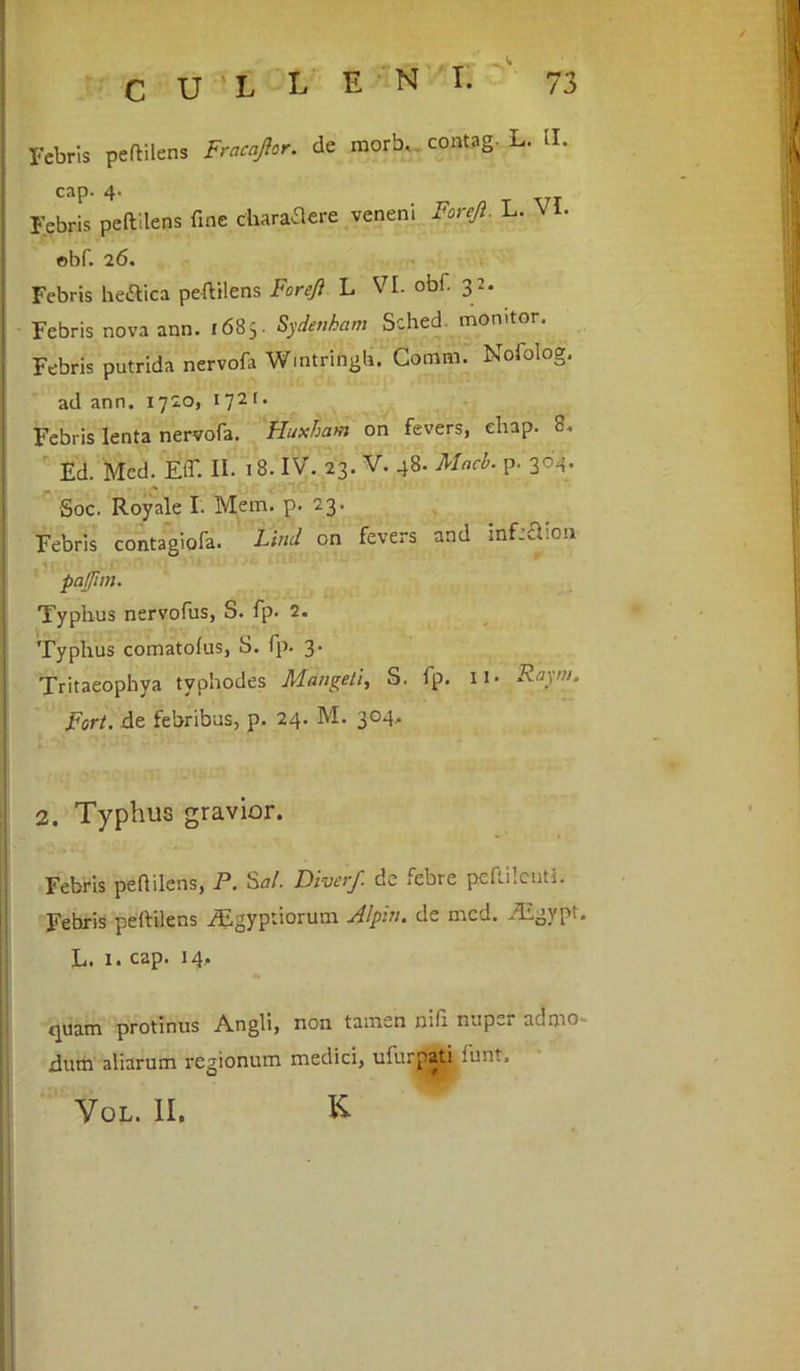 CULLENI. 73
Febris peſtilens Fracaſtor. de morb. contag. L. II.
cap. 4.
Febris peſtilens ſine charactere veneni Foreſt. L. VI.
obſ. 26.
Febris hectica peſtilens Foreſt L VI. obſ. 32.
Febris nova ann. 1685. Sydenham Sched. monitor.
Febris putrida nervoſa Wintringh. Comm. Noſolog.
ad ann. 1720, 1721.
Febris lenta nervoſa. Huxham on fevers, chap. 8.
Ed. Med. Eſſ. II. 18. IV. 23. V. 48. Macb. p. 304.
Soc. Royale I. Mem. p. 23.
Febris contagioſa. Lind on fevers and infection
paſſim.
Typhus nervoſus, S. ſp. 2.
Typhus comatoſus, S. ſp. 3.
Tritaeophya typhodes Mangeti, S. ſp. 11. Raym.
Fort. de febribus, p. 24. M. 304.
2. Typhus gravior.
Febris peſtilens, P. Sal. Diverſ. de febre peſtilenti.
Febris peſtilens Ægyptiorum Alpin. de med. Ægypt.
L. 1. cap. 14.
quam protinus Angli, non tamen niſi nuper admo-
dum aliarum regionum medici, uſurpati ſunt.
VOL. II. K